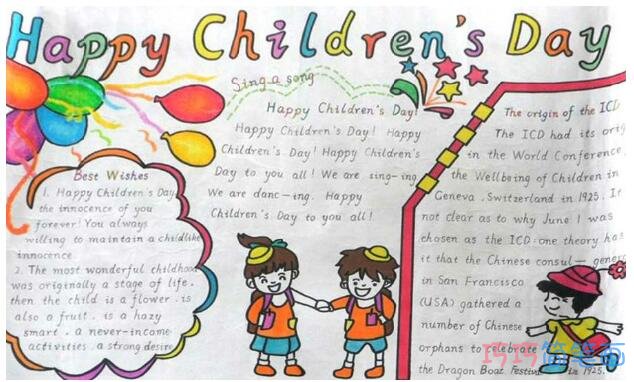 Happy Children's Day
Sing a song
Happy Children's Day!
Happy Children's Day! Happy
Children's Day! Happy Children's
Day to you all! We are sing-ing.
We are danc-ing. Happy
Children's Day to you all!
Best Wishes
1. Happy Children's Day,
the innocence of you
forever! You always
willing to maintain a childlike
innocence.
2. The most wonderful childhood
was originally a stage of life.
then the child is a flower. is
also a fruit. is a hazy
smart. a never-income
activities. a strong desire
The origin of the ICD
The ICD had its orig
in the World Conference
the Wellbeing of Children in
Geneva. Switzerland in 1925. It
not clear as to why June 1 was
chosen as the ICD: one theory has
it that the Chinese consul- gener
in San Francisco
(USA) gathered a
number of Chinese
orphans to celebrate
the Dragon Boat Festival in 1925.
巧巧简笔画